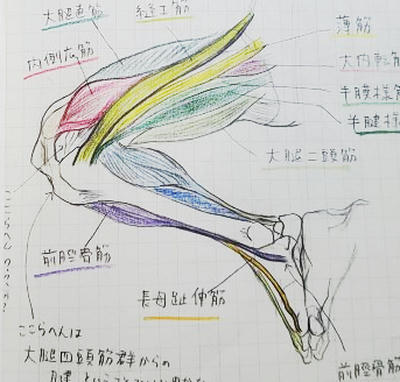 大腿直筋
縫工筋
薄筋
内側広筋
大内転筋
半膜様筋
半腱様
大腿二頭筋
前脛骨筋
長母趾伸筋
ここらへんは
大腿四頭筋群からの
前脛骨筋